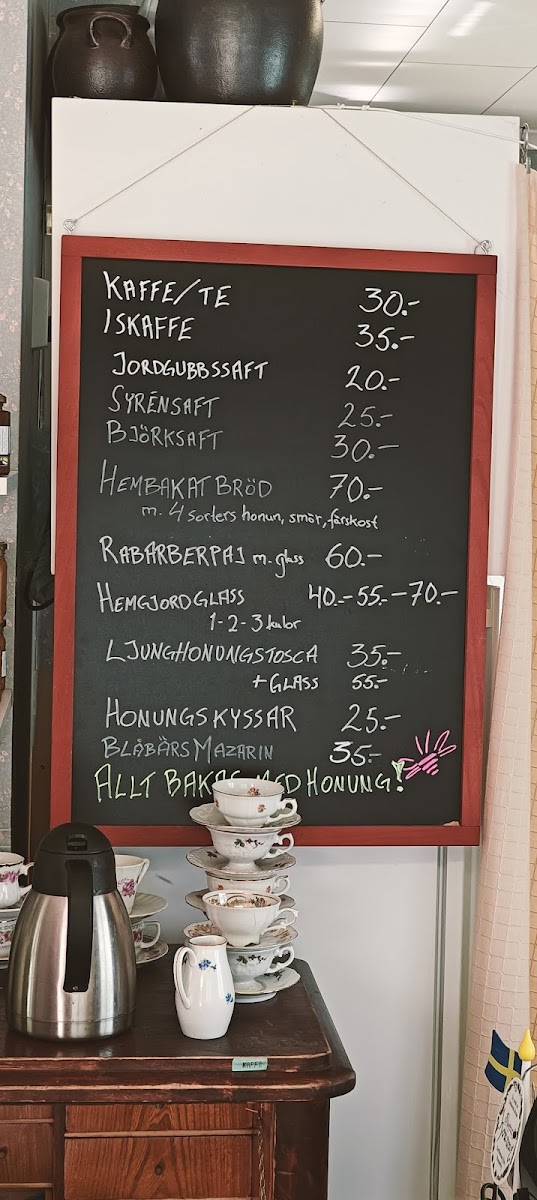 KAFFE/TE 30.-
ISKAFFE 35.-
JORDGUBBSSAFT 20.-
SYRÉNSAFT 25.-
BJÖRKSAFT 30.-
HEMBAKAT BRÖD 70.-
m. 4 sorters honun, smör, färskost
RABARBERPAJ m. glass 60.-
HEMGJORD GLASS 40.- 55.- -70.-
1-2-3 kulor
LJUNGHONUNGSTOSCA 35.-
+ GLASS 55.-
HONUNGSKYSSAR 25.-
BLÅBÄRS MAZARIN 35.-
ALLT BAKAS MED HONUNG!
KAFFE